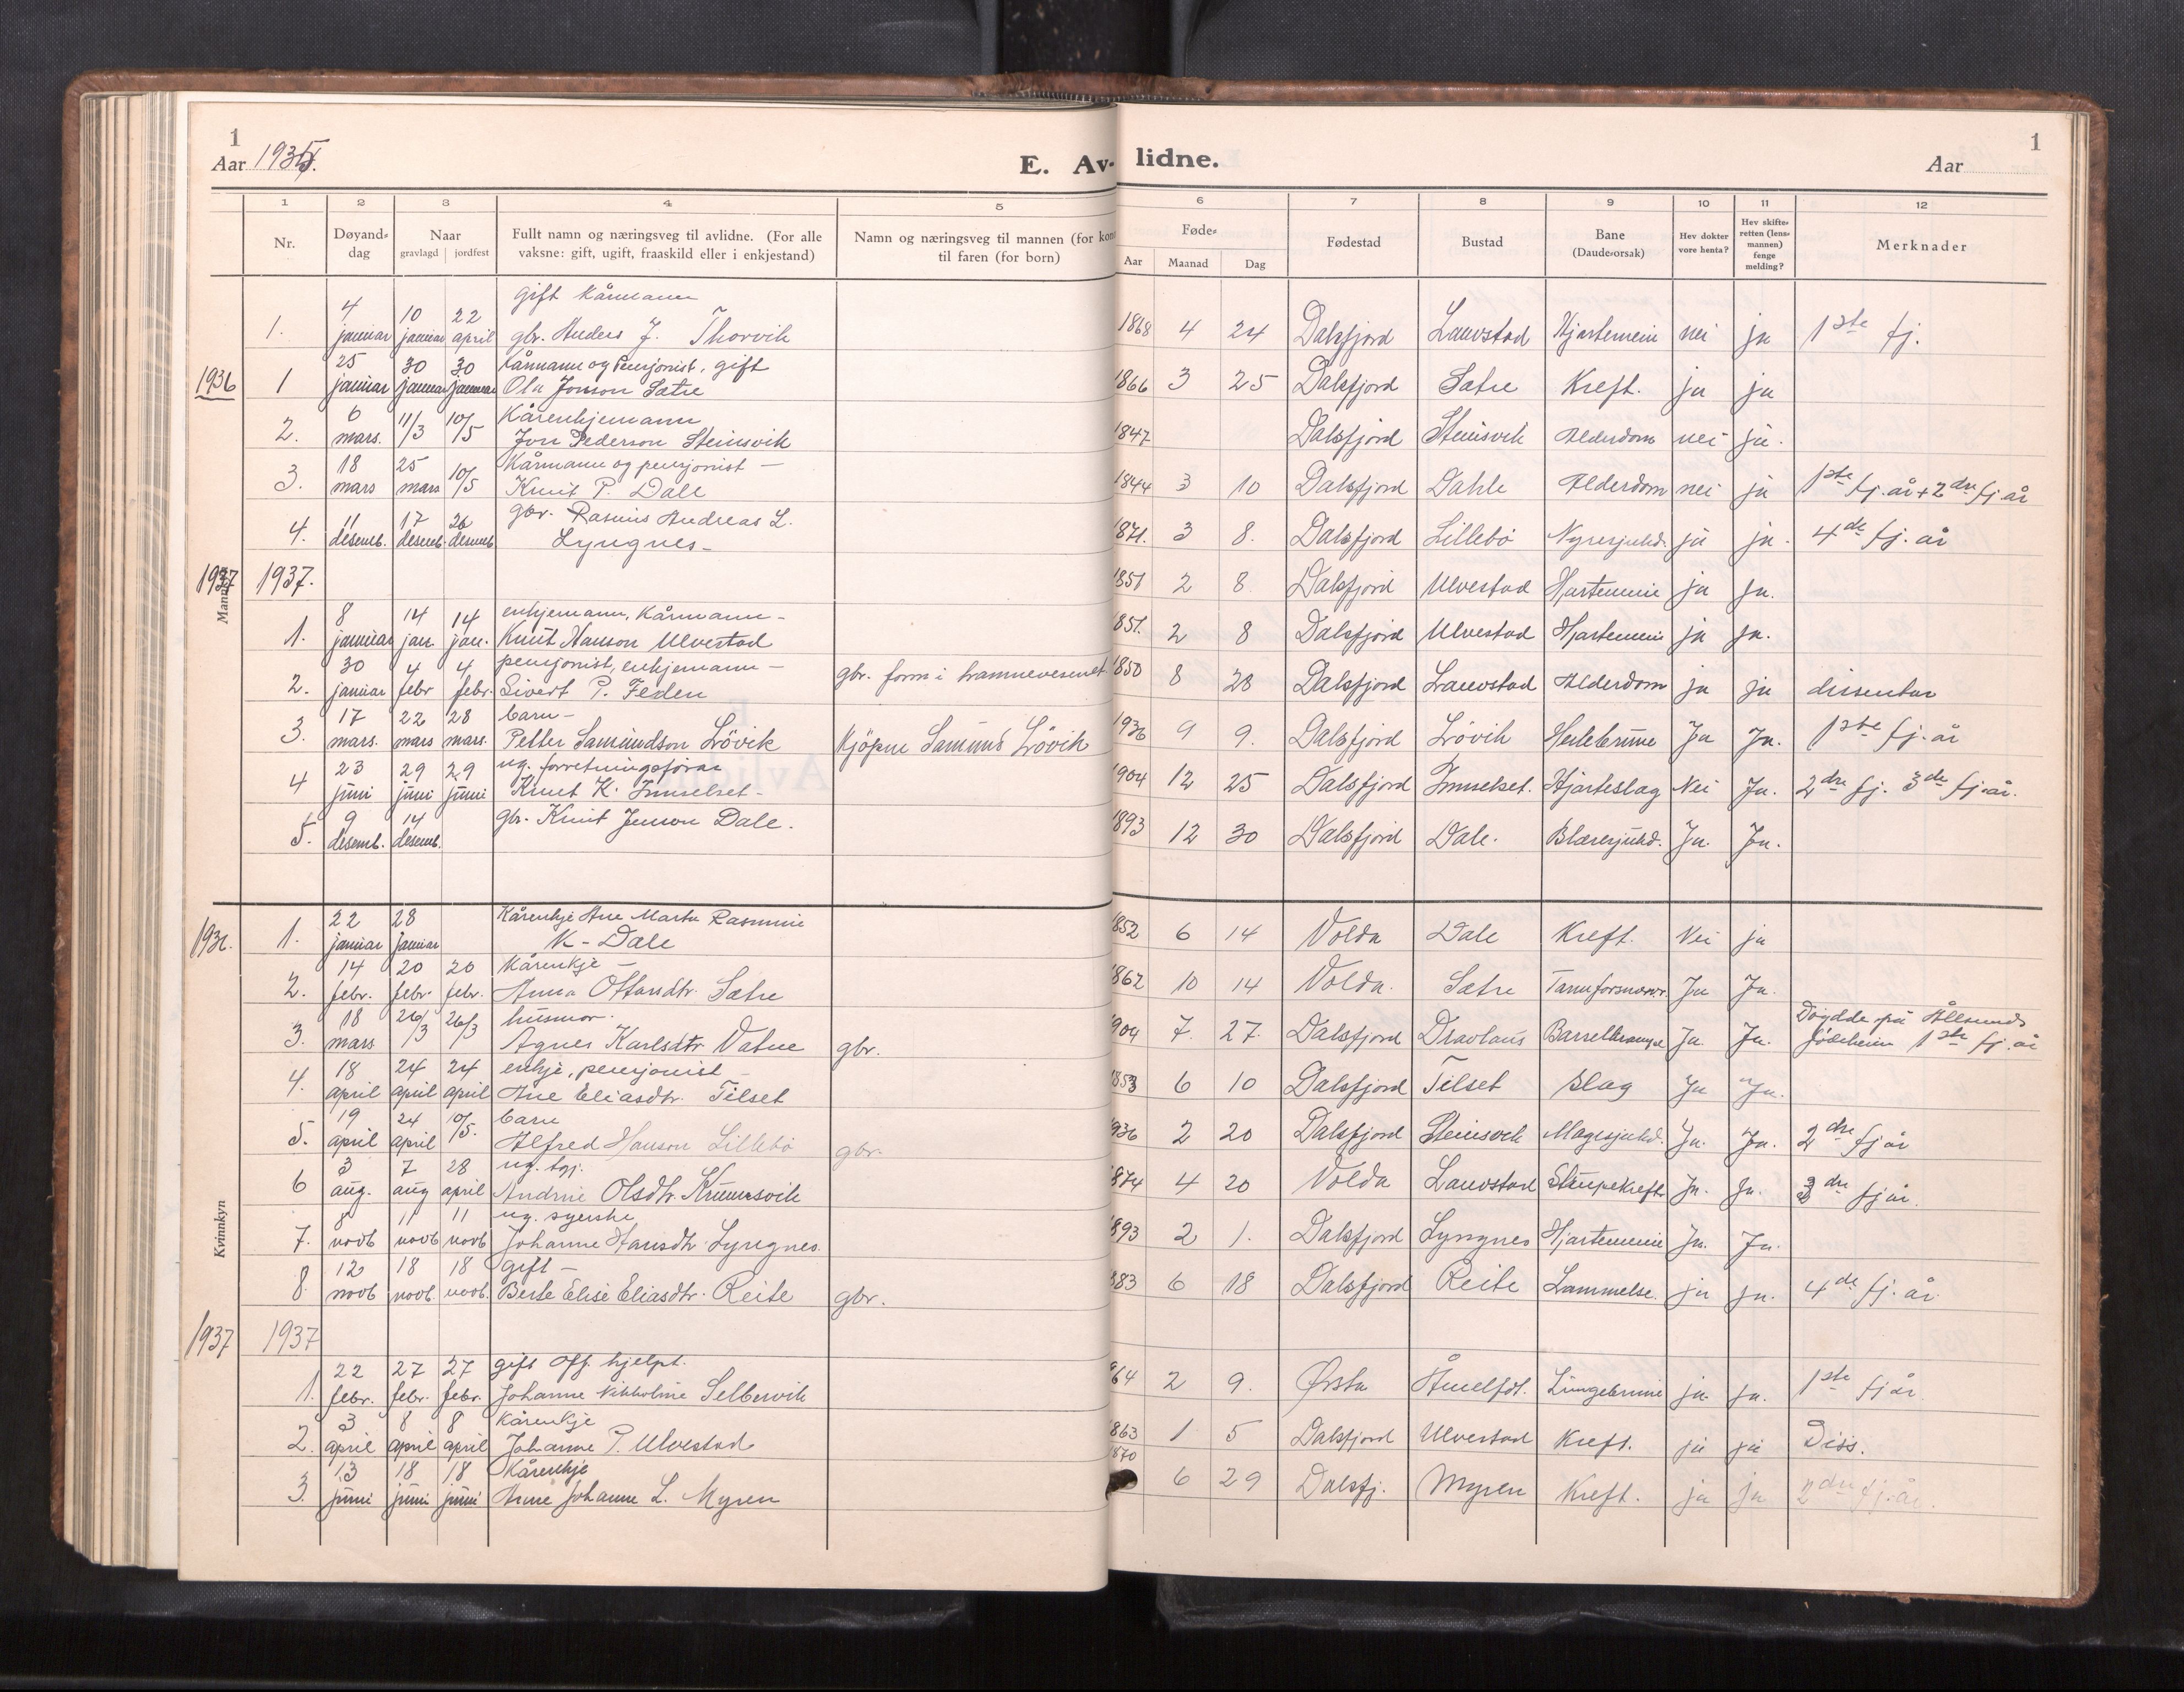 1
Aar 1935.
E. Av-
lidne.
Aar
1
1 2 3 4 5
6 7 8 9 10 11 12
Nr.
Døyand-
dag
Naar
gravlagd | jordfest
Fullt namn og næringsveg til avlidne. (For alle
vaksne: gift, ugift, fraaskild eller i enkjestand)
Namn og næringsveg til mannen (for kon
til faren (for born)
Føde-
Aar Maanad Dag
Fødestad
Bustad
Bane
(Daude-orsak)
Hev dokter
vore henta?
Hev skifte-
retten (lens-
mannen)
fenge
melding?
Merknader
4 10 22 gift kårmann
1. januar januar april gbr. Anders J. Thorvik 1868 4 24 Dalsfjord Lauvstad Hjartemein nei ja 1ste fj.
25 30 30 kårmann og Pensjonist, gift
1936 1 januar januar januar Ola Jonson Sætre 1866 3 25 Dalsfjord Sætre Kreft. ja ja
6 11/3 10/5 Kårenkjemann
2. mars. Jon Pederson Steinsvik 1847 Dalsfjord Steinsvik Alderdom nei ja.
18 25 10/5 Kårmann og pensjonist —
3. mars mars Knut P. Dale 1844 3 10 Dalsfjord Dahle Alderdom nei ja 1ste fj. år + 2dre fj. år
11 17 26 gbr. Rasmus Andreas L.
4. desemb. desemb. desemb. Lyngnes — 1871. 3 8. Dalsfjord Lillebö Nyresjukd. ja ja. 4de fj. år
Mannkyn
1937 1937. 1851 2 8 Dalsfjord Ulvestad Hjartemein ja ja.
8 14 14 enkjemann, Kårmann —
1. januar jan. jan. Knut Hanson Ulvestad 1851. 2 8 Dalsfjord Ulvestad Hjartemein ja ja.
30 4 4 pensjonist, enkjemann —
2. januar febr febr. Sivert P. Feden gbr. form i hamnevesenet 1850 8 28 Dalsfjord Lauvstad Alderdom ja ja dissentar
17 22 28 barn —
3. mars. mars mars. Petter Samundson Lövik Kjöpm Samund Lövik 1936 9 9. Dalsfjord Lövik Heilebrune Ja Ja. 1ste fj. år
23 29 29 ug. forretningsförar
4 juni juni juni Knut K. Innselset — 1904 12 25 Dalsfjord Innselset. Hjarteslag Nei Ja. 2dre fj. 3de fj. år.
9 14 gbr. Knut Jenson Dale.
5. desemb. desemb. 1893 12 30 Dalsfjord Dale. Blæresjukd. Ja. Ja.
22 28 Kårenkje Ane Marta Rasmine
1936. 1. januar januar K — Dale 1852 6 14 Volda Dale Kreft. Nei ja
14 20 20 Kårenkje —
2. febr. febr. febr. Anna Ottarsdtr. Sætre 1862 10 14 Volda. Sætre Tarmforsnævr. Ja Ja.
18 26/3 26/3 husmor.
3. mars Agnes Karlsdtr Vatne gbr. 1904 7. 27. Dalsfjord Dravlaus Barselkrampe Ja Ja. Döydde på Ålesunds
födeheim 1ste fj. år
18 24 24 enkje, pensjonist —
4. april april april Ane Eliasdtr. Tilset 1853 6 10 Dalsfjord Tilset Slag Ja Ja.
19 24 10/5. barn
5. april april Alfred Hanson Lillebö gbr. 1936 2 20 Dalsfjord Steinsvik Magesjukd. Ja. Ja. 2dre fj år
3 7 28 ug. tgj.
6 aug. aug april Andrine Olsdtr. Krumsvik 1874 4 20 Volda Lauvstad Strupekreft Ja. Ja. 3dre fj år.
Kvinnkyn
8 11 11 ug. syerske
7. novb novb novb Johanne Hansdtr. Lyngnes. 1893 2 1. Dalsfjord Lyngnes Hjartemein Ja. Ja.
12 18 18 gift —
8. novb novb. novb. Berte Elise Eliasdtr. Reite gbr. 1883 6 18 Dalsfjord Reite Lammelse. ja ja. 4de fj. år.
1937 1937
22 27 27 gift Off. hjelpt.
1. febr. febr. febr. Johanne Nikholine Selbervik 1864 2 9. Ørsta Åmelfot. Lungebrune ja ja. 1ste fj år.
3 8 8 Kårenkje
2. april april april Johanne P. Ulvestad 1863 1 5 Dalsfjord Ulvestad Kreft. ja ja Diss.
13 18 18 Kårenkje 1870
3. juni juni juni Anne Johanne L. Myren 6 29 Dalsfj. Myren Kreft. ja ja 2dre fj. år.